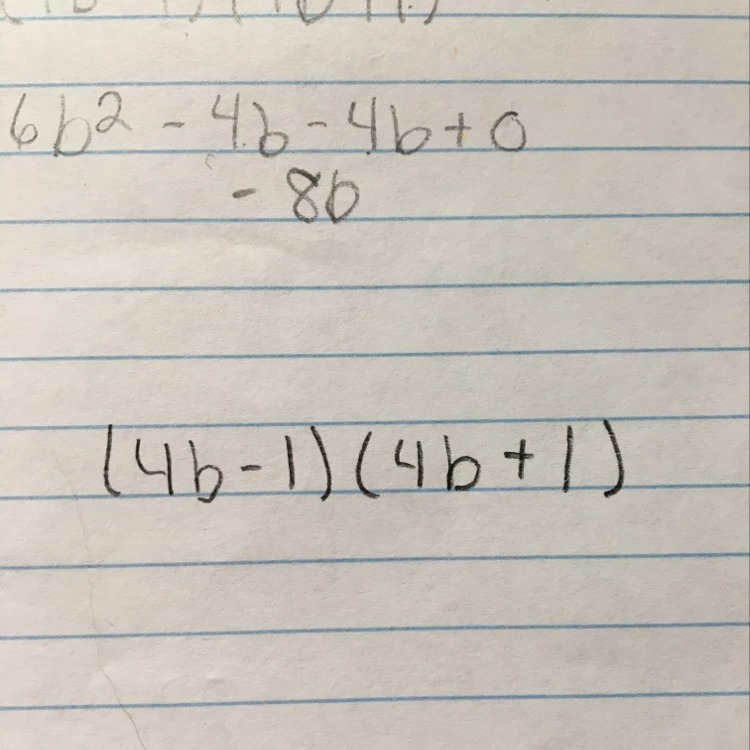 6b² - 4b - 4b + 0
- 8b
(4b - 1)(4b + 1)